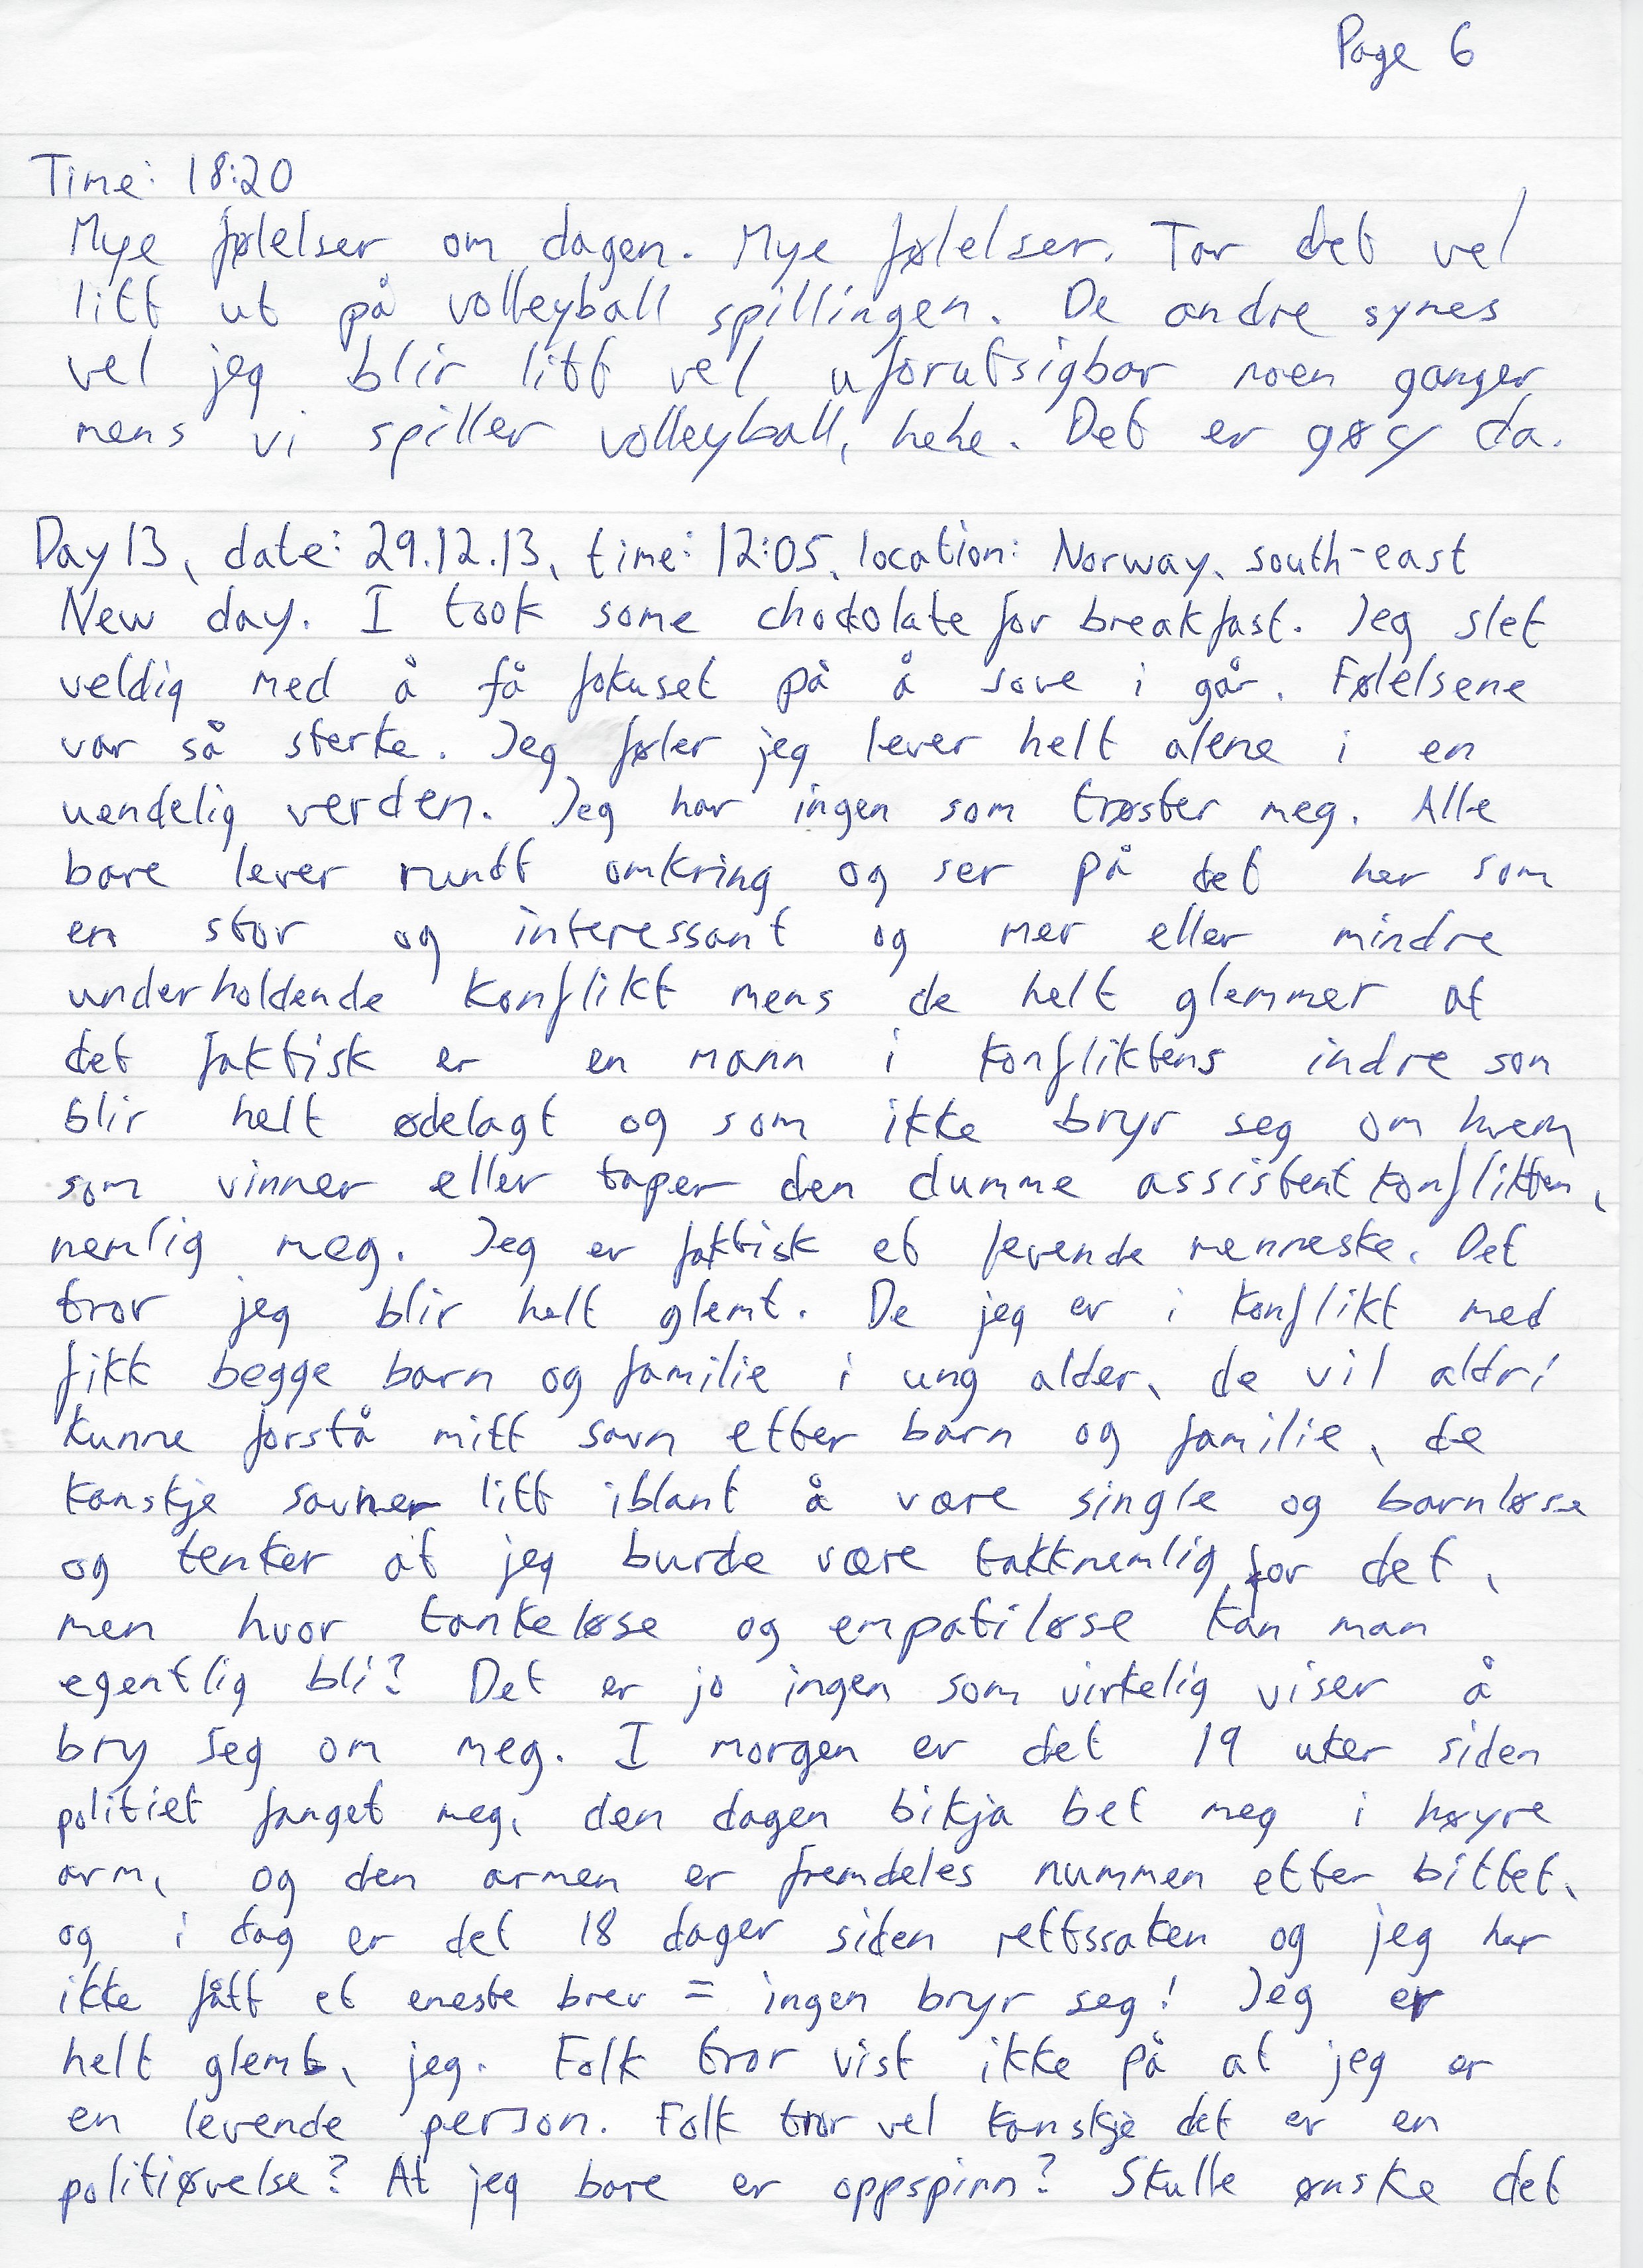 Page 6
Time: 18:20
Mye følelser om dagen. Mye følelser. Tar det vel
litt ut på volleyball spillingen. De andre synes
vel jeg blir litt vel uforutsigbar noen ganger
mens vi spiller volleyball, hehe. Det er gøy da.
Day 13, date: 29.12.13, time: 12:05, location: Norway, south-east
New day. I took some chockolate for breakfast. Jeg slet
veldig med å få fokuset på å sove i går. Følelsene
var så sterke. Jeg føler jeg lever helt alene i en
uendelig verden. Jeg har ingen som trøster meg. Alle
bare lever rundt omkring og ser på det her som
en stor og interessant og mer eller mindre
underholdende konflikt mens de helt glemmer at
det faktisk er en mann i konfliktens indre som
blir helt ødelagt og som ikke bryr seg om hvem
som vinner eller taper den dumme assistent konflikten,
nemlig meg. Jeg er faktisk et levende menneske. Det
tror jeg blir helt glemt. De jeg er i konflikt med
fikk begge barn og familie i ung alder, de vil aldri
kunne forstå mitt savn etter barn og familie, de
kanskje savner litt iblant å være single og barnløse
og tenker at jeg burde være takknemlig for det,
men hvor tankeløse og empatiløse kan man
egentlig bli? Det er jo ingen som virkelig viser å
bry seg om meg. I morgen er det 19 uker siden
politiet fanget meg, den dagen bikja bet meg i høyre
arm, og den armen er fremdeles nummen etter bittet,
og i dag er det 18 dager siden rettssaken og jeg har
ikke fått et eneste brev = ingen bryr seg! Jeg er
helt glemt, jeg. Folk tror vist ikke på at jeg er
en levende person. Folk tror vel kanskje det er en
politiøvelse? At jeg bare er oppspinn? Skulle ønske det